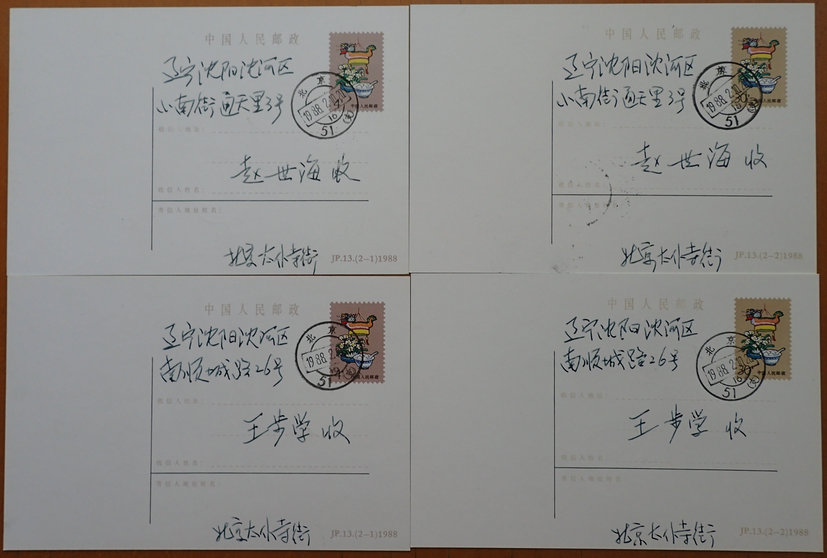 中国人民邮政
辽宁沈阳沈河区
小南街通天里3号
中国人民邮政
北京
1988.2.10
16
51 (支)
收信人地址:
赵世海 收
收信人姓名:
寄信人地址姓名:
北京太仆寺街
JP.13.(2-1)1988
中国人民邮政
辽宁沈阳沈河区
小南街通天里3号
北京
1988.2.10
16
51 (支)
中国人民邮政
收信人地址:
赵世海 收
收信人姓名:
寄信人地址姓名:
北京太仆寺街
JP.13.(2-2)1988
中国人民邮政
辽宁沈阳沈河区
南顺城路26号
北京
1988.2.10
51 (支)
中国人民邮政
收信人地址:
王步学 收
收信人姓名:
寄信人地址姓名:
北京太仆寺街
JP.13.(2-1)1988
中国人民邮政
辽宁沈阳沈河区
南顺城路26号
北京
1988.2.10
16
51 (支)
中国人民邮政
收信人地址:
王步学 收
收信人姓名:
寄信人地址姓名:
北京太仆寺街
JP.13.(2-2)1988